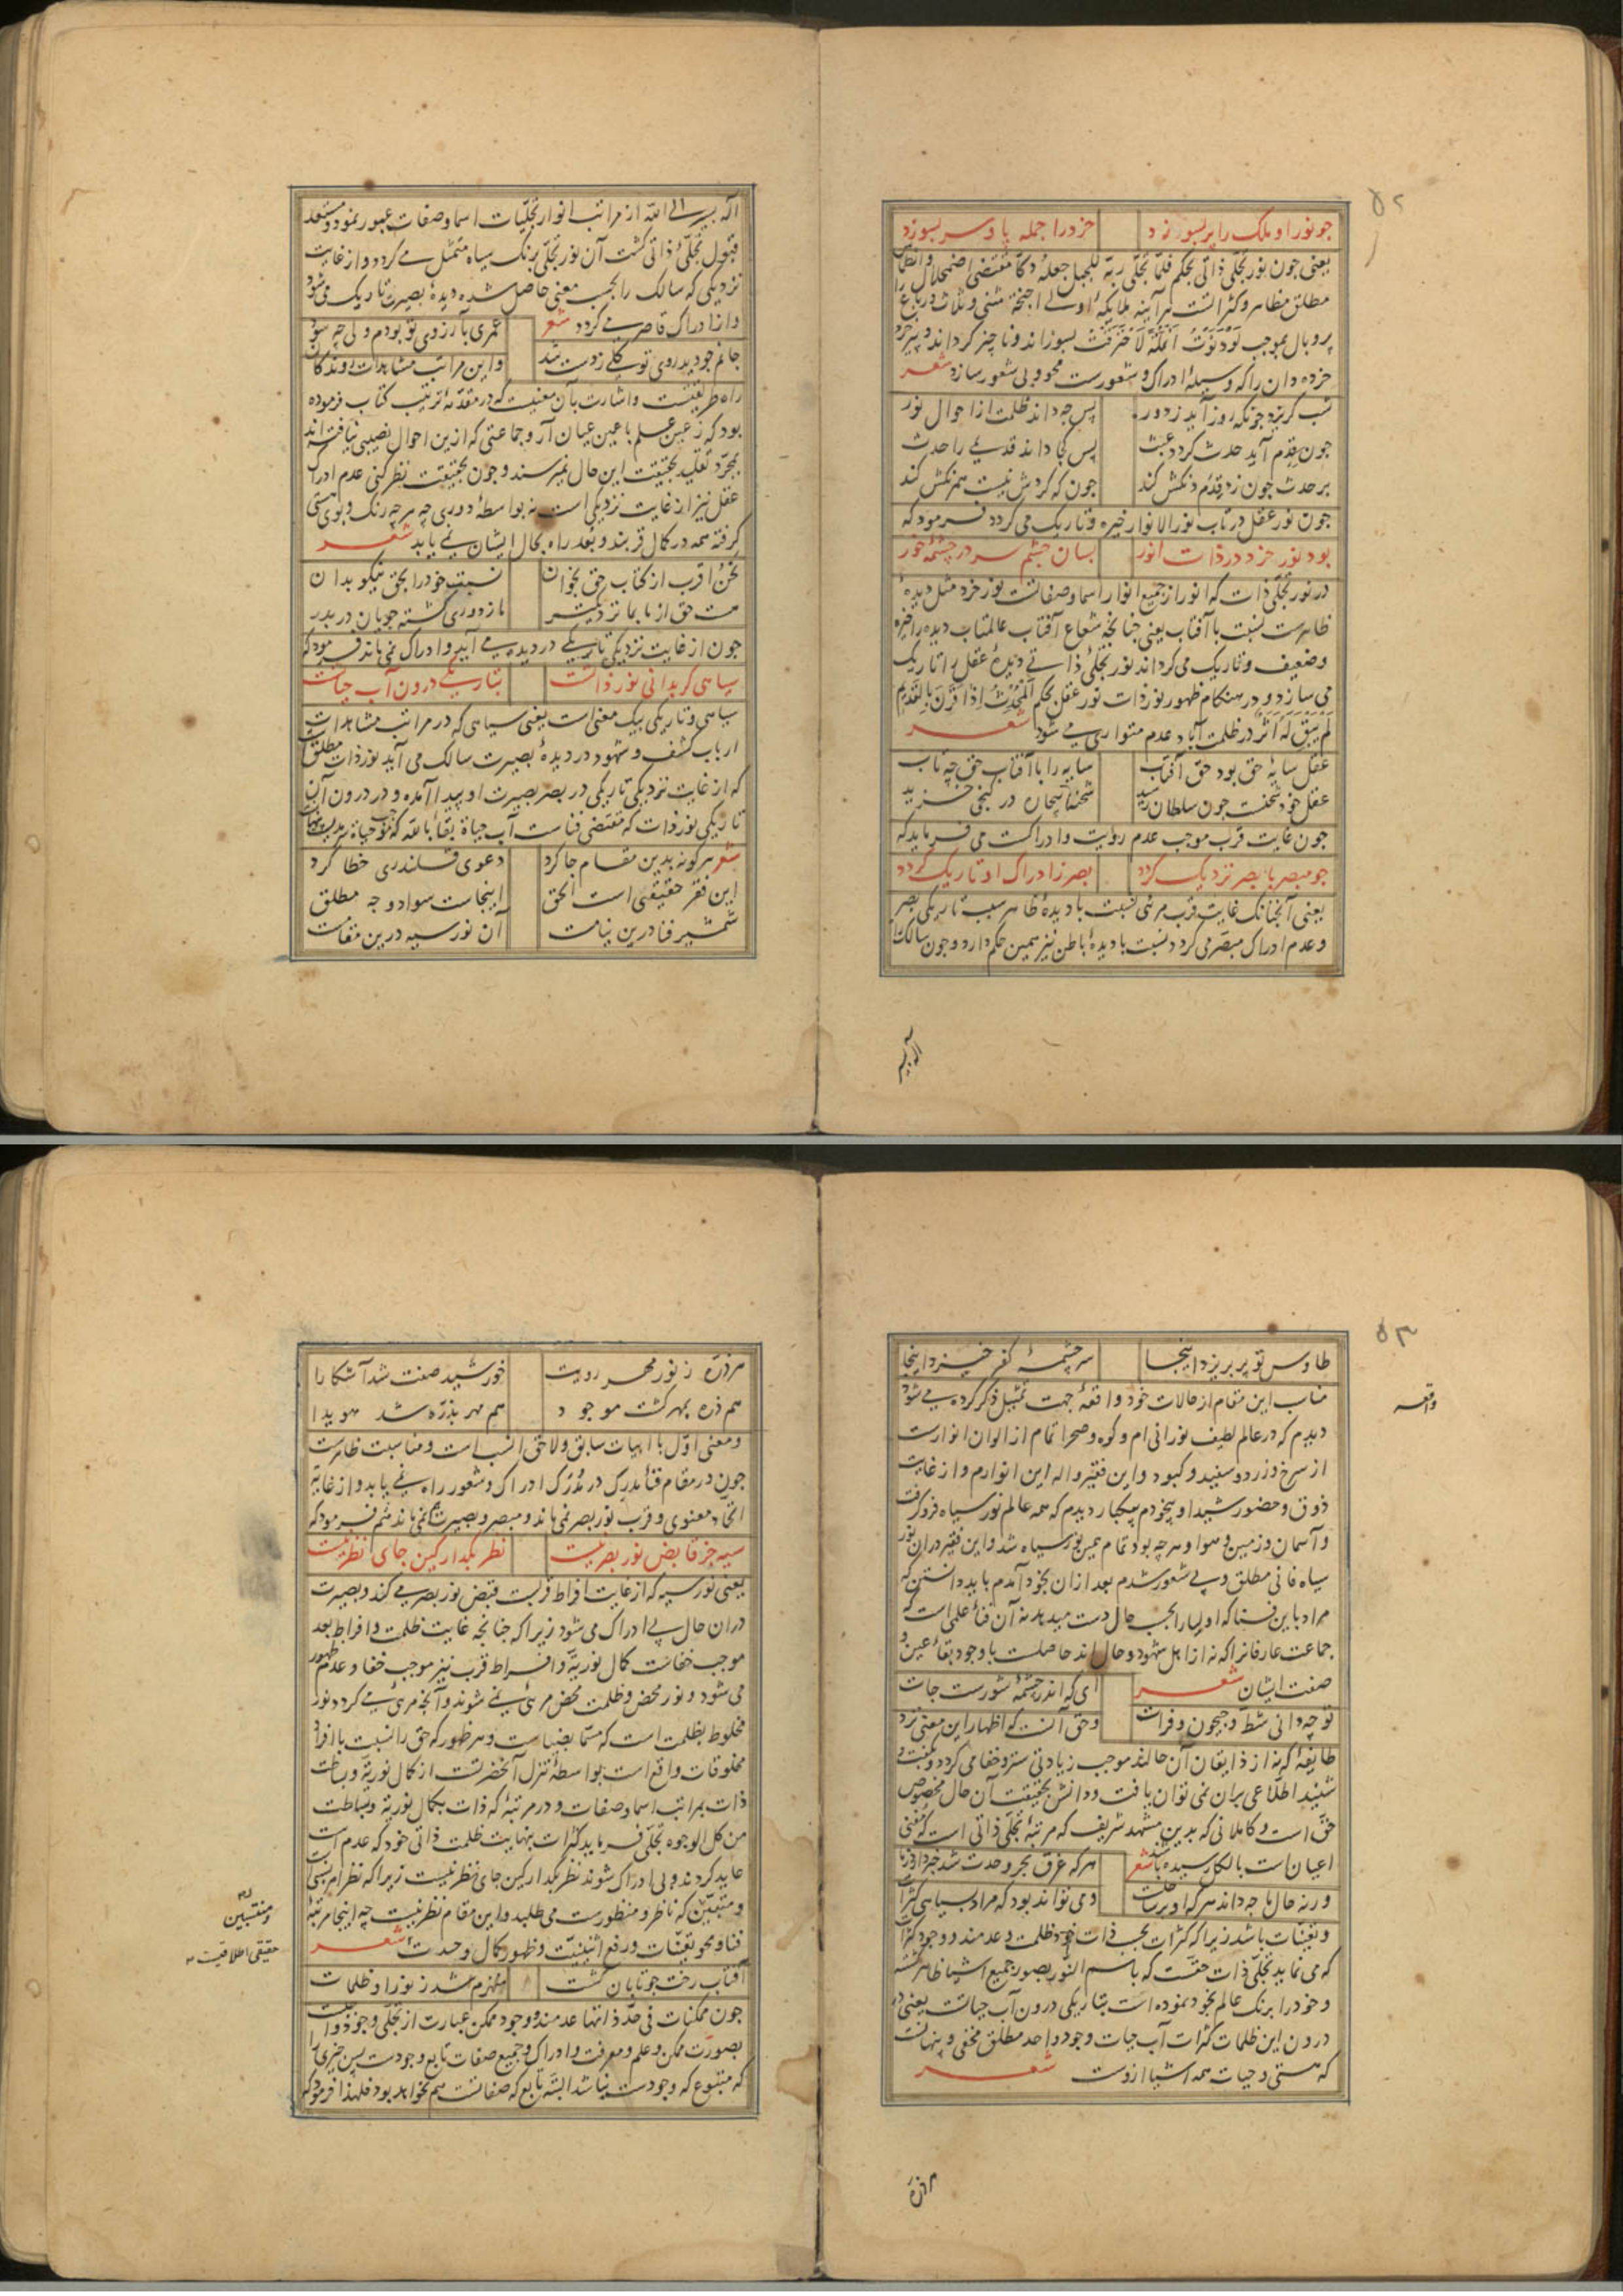 ۵۲
چو نور او ملک را پر بسوزد خرد را جمله پا و سر بسوزد
یعنی چون نور تجلی ذاتی بحکم فلما تجلی ربه للجبل جعله دکا مقتضی اضمحلال و انطماس
مطلق مظاهر و کثراتست هر آینه ملایکه اولی اجنحة مثنی و ثلاث و رباع را
پر و بال بموجب لو دنوت انملة لاحترقت بسوزاند و ناچیز گرداند و پیر خرد
خرده دان را که وسیلهٔ ادراک و شعورست محو و بی شعور سازد شعر
شب گریزد چونکه روز آید ز دور پس چه داند ظلمت از احوال نور
چون قدم آید حدث گردد عبث پس کجا داند قدیمی را حدث
بر حدث چون زد قدم دنکش کند چون که کردش نیست همرنکش کند
چون نور عقل در تاب نور الانوار خیره و تاریک می گردد فرمود که
بود نور خرد در ذات انور بسان چشم سر در چشمهٔ خور
در نور تجلی ذات که انور از جمیع انوار اسما و صفاتست نور خرد مثل دیدهٔ
ظاهرست نسبت با آفتاب یعنی چنانچه شعاع آفتاب عالمتاب دیده را خیره
و ضعیف و تاریک می گرداند نور تجلی ذاتی دیدهٔ عقل را تاریک
می سازد و در هنگام ظهور نور ذات نور عقل بحکم المحدث اذا قرن بالقدیم
لم یبق له اثر در ظلمت آباد عدم متواری می شود شعر
عقل سایهٔ حق بود حق آفتاب سایه را با آفتاب حق چه تاب
عقل خود شحنست چون سلطان رسید شحنهٔ بیچاره در کنجی خزید
چون غایت قرب موجب عدم رویت و ادراکست می فرماید که
چو مبصر با بصر نزدیک گردد بصر ز ادراک او تاریک گردد
یعنی آنچنانک غایت قرب مرئی نسبت با دیدهٔ ظاهر سبب تاریکی بصر
و عدم ادراک مبصر می گردد نسبت با دیدهٔ باطن نیز همین حکم دارد و چون سالک
اله بسیر
اله بسیر الی الله از مراتب انوار تجلیات اسما و صفات عبور نمود و مستعد
قبول تجلی ذاتی گشت آن نور تجلی برنک سیاه متمثل می گردد و از غایت
نزدیکی که سالک را بحسب معنی حاصل شده دیدهٔ بصیرتش تاریک می شود
و از ادراک قاصر می گردد شعر عمری بآرزوی تو بودم ولی چه سود
جانم چو دید روی تو کلی ز دست شد و این مراتب مشاهدات روندگان
راه طریقتست و اشارت بآن معنیست که در مقدمهٔ ترتیب کتاب فرموده
بود که ز عین علم با عین عیان آ و جماعتی که ازین احوال نصیبی نیافته اند
بمجرد تقلید بحقیقت این حال نمیرسند و چون بحقیقت نظر کنی عدم ادراک
عقل نیز از غایت نزدیکی است نه بواسطهٔ دوری چه هرچه رنگ و بوی هستی
گرفته همه در کمال قربند و بعد راه بحال ایشان نمی یابد شعر
نحن اقرب از کتاب حق بخوان نسبت خود را بحق نیکو بدان
هست حق از ما بما نزدیکتر ما ز دوری گشته جویان در بدر
چون از غایت نزدیکی تاریکی در دیده می آید و ادراک نمی ماند فرمود که
سیاهی گر بدانی نور ذاتست بتاریکی درون آب حیاتست
سیاهی و تاریکی بیک معنی است یعنی سیاهی که در مراتب مشاهدات
ارباب کشف و شهود در دیدهٔ بصیرت سالک می آید نور ذات مطلق است
که از غایت نزدیکی تاریکی در بصر بصیرت او پیدا آمده و در درون آن
تاریکی نور ذات که مقتضی فناست آب حیاة بقا بالله که موجب حیاة سرمدیست پنهانست
شعر هر کو نه بدین مقام جا کرد دعوی قلندری خطا کرد
این فقر حقیقی است الحق اینجاست سواد وجه مطلق
شمشیر فنا درین نیامست آن نور سیه درین مقامست
۵۳
طاوس تو پر بریزد اینجا سرچشمهٔ کفر خیزد اینجا
مناسب این مقام از حالات خود واقعهٔ جهت تمثیل ذکر کرده می شود
واقعه
دیدم که در عالم لطیف نورانی ام و کوه و صحرا تمام از الوان انوارست
از سرخ و زرد و سفید و کبود و این فقیر واله این انوارم و از غایت
ذوق و حضور شیدا و بیخودم بیکبار دیدم که همه عالم نور سیاه فرو گرفت
و آسمان و زمین و هوا و هرچه بود تمام همین نور سیاه شد و این فقیر در آن نور
سیاه فانی مطلق و بی شعور شدم بعد از آن بخود آمدم باید دانستن که
مراد باین فنا که اولیا را بحسب حال دست میدهد نه آن فناء علمی است که
جماعت عارفانرا که نه از اهل شهود و حال اند حاصلست با وجود بقاء عین و
صفت ایشان شعر ای که اندر چشمهٔ شورست جات
تو چه دانی شط و جیحون و فرات و حق آنست که اظهار این معنی نزد
طایفهٔ که نه از ذایقان آن حالند موجب زیادتی ستر و خفا می گردد و بگفت و
شنید اطلاعی بران نمی توان یافت و دانش بحقیقت آن حال مخصوص
حق است و کاملانی که بدین مشهد شریف که مرتبهٔ تجلی ذاتی است که مفنی
اعیان است بالکل رسیده باشند شعر هر که غرق بحر وحدت شد خبر دارد ز ما
ورنه حال ما چه داند هر که او بر ساحلست و می تواند بود که مراد بسیاهی کثرات
و تعینات باشد زیرا که کثرات بحسب ذات خود ظلمت و عدمند و وجود کثرات
که می نماید تجلی ذات حقست که باسم النور بصور جمیع اشیا ظاهر گشته
و خود را برنک عالم بخود نموده است بتاریکی درون آب حیاتست یعنی در
درون این ظلمات کثرات آب حیات وجود واحد مطلق مخفی و پنهانست
که هستی و حیات همه اشیا ازوست شعر
هر ذره
هر ذره ز نور مهر رویت خورشید صفت شد آشکارا
هم ذره بمهر گشت موجود هم مهر بذره شد هویدا
و معنی اول با ابیات سابق و لاحق انسب است و مناسبت ظاهرست
چون در مقام فناء مدرک در مدرک ادراک و شعور راه نمی یابد و از غایة
اتحاد معنوی و قرب نور بصر نمی ماند و مبصر و بصیرت نمی ماند فرمود که
سیه جز قابض نور بصر نیست نظر بگذار کین جای نظر نیست
یعنی نور سیه که از غایت افراط قربست قبض نور بصر می کند و بصیرت
در ان حال بی ادراک می شود زیرا که چنانچه غایت ظلمت و افراط بعد
موجب خفاست کمال نوریة و افراط قرب نیز موجب خفا و عدم ظهور
می شود و نور محض و ظلمت محض مرئی نمی شوند و آنچه مرئی می گردد نور
مخلوط بظلمت است که مسما بضیاست و هر ظهور که حق را نسبت با افراد
مخلوقات واقع است بواسطهٔ تنزل آنحضرتست از کمال نوریة و بساطت
ذات بمراتب اسما و صفات و در مرتبهٔ که ذات بکمال نوریة و بساطت
من کل الوجوه تجلی فرماید کثرات بنهایت ظلمت ذاتی خود که عدم است
عاید گردند و بی ادراک شوند نظر بگذار کین جای نظر نیست زیرا که نظر امر نسبی است
و منتسبین که ناظر و منظورست می طلبد و این مقام نظر نیست چه اینجا مرتبهٔ
و منتسبین
فنا و محو تعینات و رفع اثنینیت و ظهور کمال وحدت شعر
حقیقی اطلاقیست
آفتاب رخت چو تابان گشت منهزم شد ز نور او ظلمات
چون ممکنات فی حد ذاتها عدمند و وجود ممکن عبارت از تجلی وجود واجبست
بصورت ممکن و علم و معرفت و ادراک و جمیع صفات تابع وجودست پس چیزی را
که متبوع که وجودست نباشد البته تابع که صفاتست هم نخواهد بود فلهذا فرمود که